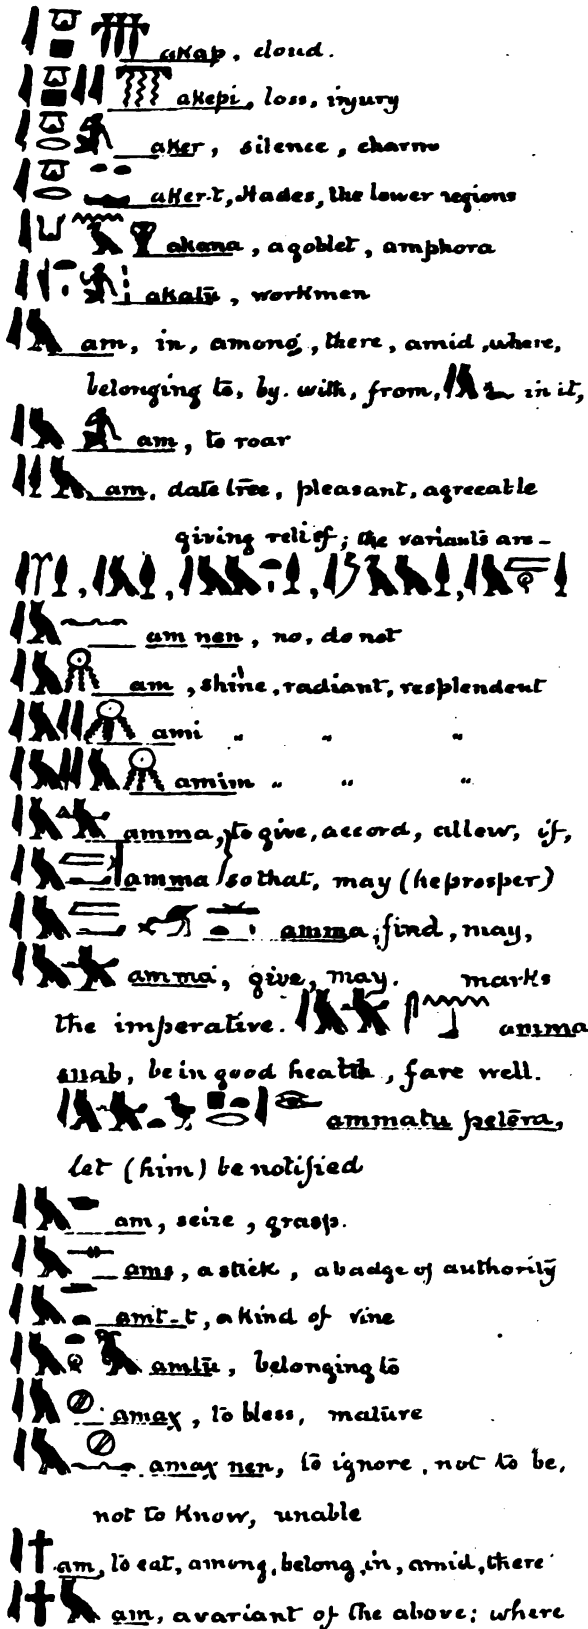 akap, cloud.
akepi, loss, injury
aker, silence, charm
aker-t, Hades, the lower regions
akana, a goblet, amphora
akatū, workmen
am, in, among, there, amid, where,
belonging to, by. with, from, in it,
am, to roar
am, date tree, pleasant, agreeable
giving relief; the variants are-
am nen, no, do not
am, shine, radiant, resplendent
ami " " "
amim " " "
amma, to give, accord, allow, if,
amma so that, may (he prosper)
amma, find, may,
amma, give, may. marks
the imperative. amma
snab, be in good health, fare well.
ammatu petēra,
let (him) be notified
am, seize, grasp.
ams, a stick, a badge of authority
amt-t, a kind of vine
amtū, belonging to
amaχ, to bless, mature
amaχ nen, to ignore, not to be,
not to know, unable
am, to eat, among, belong, in, amid, there
am, a variant of the above; where